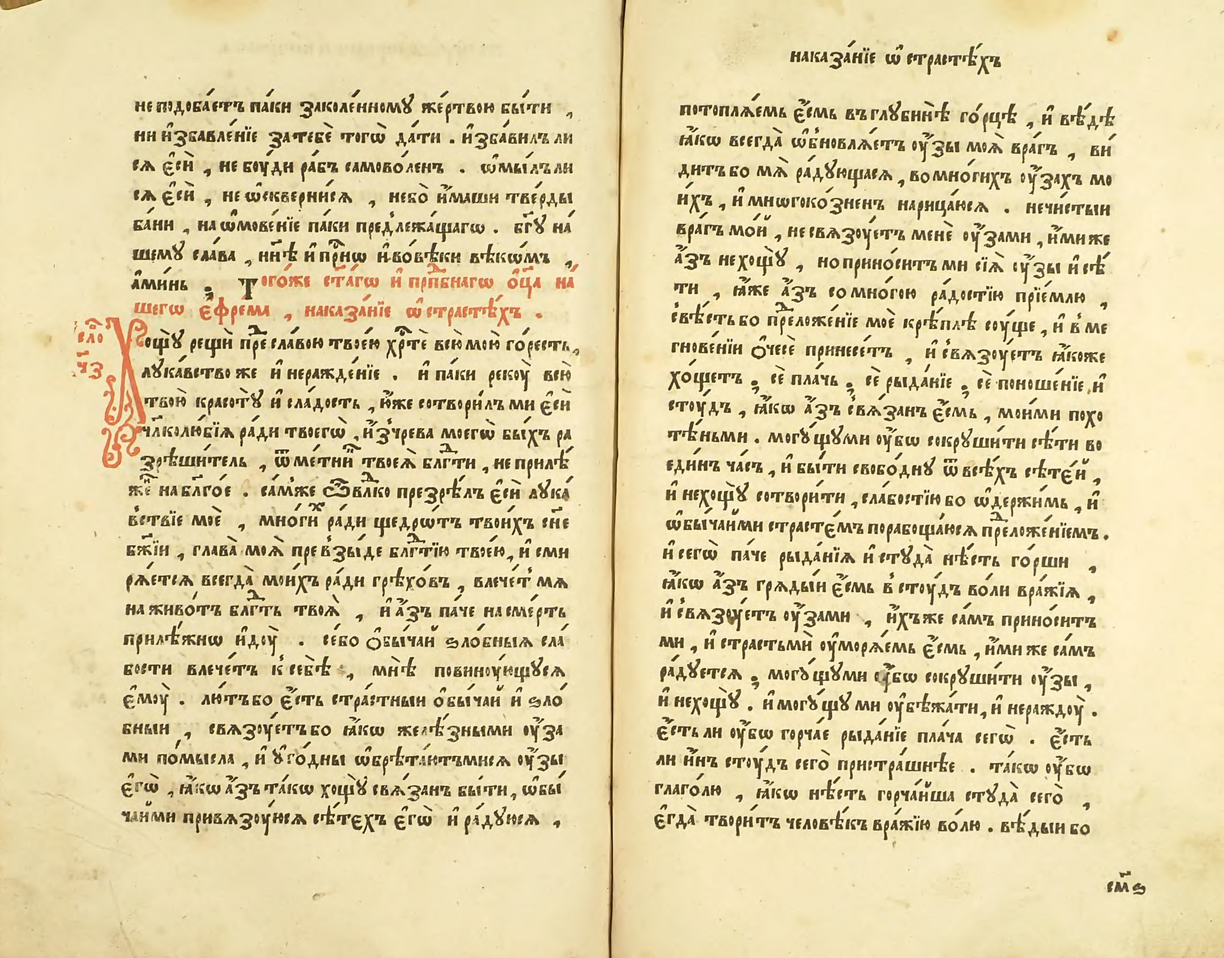 не подоба́етъ па́ки заколе́нномꙋ же́ртвою бы́ти ,
ни и҆збавле́нїе за тебѐ того̀ да́ти . и҆зба́вилъ ли
сѧ є҆сѝ , не бꙋ́ди ра́бъ самово́ленъ . ѡ҆мы́лъ ли
сѧ є҆сѝ , не ѡ҆скверни́сѧ , небо̀ и҆́маши тве́рды
ба́ни , на ѡ҆мове́нїе па́ки предлежа́щагѡ . бг҃ꙋ на́
шемꙋ сла́ва , нн҃ѣ и҆ при́снѡ и҆ во вѣ́ки вѣкѡ́мъ ,
а҆ми́нь . Того́же ст҃а́гѡ и҆ прпⷣбнагѡ ѻ҆ц҃а̀ на́
шегѡ є҆фре́ма , наказа́нїе ѡ҆ страсте́хъ .
сло́
ч҃з
Хощꙋ̀ рещѝ преⷣ сла́вою твоею̀ хрⷭ҇тѐ всю̀ мою̀ го́ресть ,
лꙋка́вство же и҆ неражде́нїе . и҆ па́ки рекꙋ̀ всю̀
твою̀ красотꙋ̀ и҆ сла́дость , ю҆́же сотвори́лъ ми є҆сѝ
чл҃колю́бїѧ ра́ди твоегѡ̀ , и҆з̾ чре́ва моегѡ̀ бы́хъ ра
зрѣши́тель , ѿме́тникъ твоеѧ̀ блгⷣти , не прилѣ́
же́нъ на бл҃го́е . са́мже ѽ влⷣко презрѣ́лъ є҆сѝ лꙋка́
вствїе моѐ , мно́гихъ ра́ди щедрѡ́тъ твои́хъ сн҃е
бж҃їи , глава̀ моѧ̀ превзы́де блгⷣтїю твое́ю , и҆ сми
рѧ́етсѧ всегда̀ мои́хъ ра́ди грѣхо́въ , влече́тъ мѧ̀
на живо́тъ блгⷣть твоѧ̀ , и҆ а҆́зъ па́че на сме́рть
прилѣ́жнѡ и҆дꙋ̀ . се́бо ѻ҆бы́чаи ѕло́бныѧ сла́
бости влече́тъ к̾ себѣ̀ , мнѣ̀ повинꙋ́ющꙋсѧ
є҆мꙋ̀ . лю́тъ бо є҆́сть стра́стныи ѻ҆бы́чаи и҆ ѕло́
бныи , свѧзꙋ́етъ бо ꙗ҆́кѡ желѣ́зными оу҆́за
ми по́мысла , и҆ оу҆го́дны ѡ҆брѣта́ютъмисѧ оу҆́зы
є҆гѡ̀ , ꙗ҆́кѡ а҆́зъ та́кѡ хощꙋ̀ свѧ́занъ бы́ти , ѡ҆бы́
чаи́ми привѧзꙋ́юсѧ сѣ́техъ є҆гѡ̀ и҆ ра́дꙋюсѧ ,
наказа́нїе ѡ҆ страсте́хъ
потоплѧ́емь є҆́смь въ глꙋбинѣ̀ го́рцѣ , и҆ вѣ́дѣ
ꙗ҆́кѡ всегда̀ ѡ҆бновлѧ́етъ оу҆́зы моѧ̀ вра́гъ , ви́
дитъ бо мѧ̀ ра́дꙋющасѧ , во мно́гихъ оу҆́захъ мо
и҆́хъ , и҆ мнѡгоко́зненъ нарица́юсѧ . нечи́стыи
вра́гъ мо́и , не свѧзꙋ́етъ менѐ оу҆́зами , и҆́миже
а҆́зъ не хощꙋ̀ , но прино́ситъ ми сїѧ̀ оу҆́зы и҆ сѣ́
ти , ꙗ҆́же а҆́зъ со мно́гою ра́достїю прїе́млю ,
свѣ́сть бо преⷣложе́нїе моѐ крѣ́плѣ сꙋ́ще , и҆ в̾ ме
гнове́нїи ѻ҆́чесе принесе́тъ , и҆ свѧзꙋ́етъ ꙗ҆́коже
хо́щетъ . сѐ пла́чь . сѐ рыда́нїе . сѐ поноше́нїе и҆
стꙋ́дъ , ꙗ҆́кѡ а҆́зъ свѧ́занъ є҆́смь , мои́ми похо
тѣ́ньми . могꙋ́щꙋми оу҆́бѡ сокрꙋши́ти сѣ́ти во
еди́нъ ча́съ , и҆ бы́ти свобо́днꙋ ѿ всѣ́хъ сѣ́те́й ,
и҆ не хощꙋ̀ сотвори́ти , сла́бостїю бо ѡ҆держи́мь , и҆
ѡ҆бы́чаи́ми страсте́мъ порабоща́юсѧ преⷣложе́нїемъ .
и҆ сегѡ̀ па́че рыда́нїѧ и҆ стꙋда̀ нѣ́сть го́рши ,
ꙗ҆́кѡ а҆́зъ грѧды́и є҆́смь в̾ стꙋ́дъ во́ли вра́жїѧ ,
и҆ свѧзꙋ́етъ оу҆́зами , и҆́хъже са́мъ прино́ситъ
ми , и҆ страстьмѝ оу҆морѧ́емь є҆́смь , и҆́миже са́мъ
ра́дꙋетсѧ . могꙋ́щꙋми оу҆́бѡ сокрꙋши́ти оу҆́зы ,
и҆ не хощꙋ̀ . и҆ могꙋ́щꙋ ми оу҆бѣжа́ти , и҆ нераждꙋ̀ .
є҆́сть ли оу҆́бѡ горча́е рыда́нїе пла́ча сегѡ̀ . є҆́сть
ли и҆́нъ стꙋ́дъ сего̀ пристра́шнѣе . та́кѡ оу҆́бѡ
глаго́лю , ꙗ҆́кѡ нѣ́сть горча́йша стꙋда̀ сего̀ ,
є҆гда̀ твори́тъ человѣ́къ вра́жїю во́лю . вѣ́дыи бо
см҃ѕ